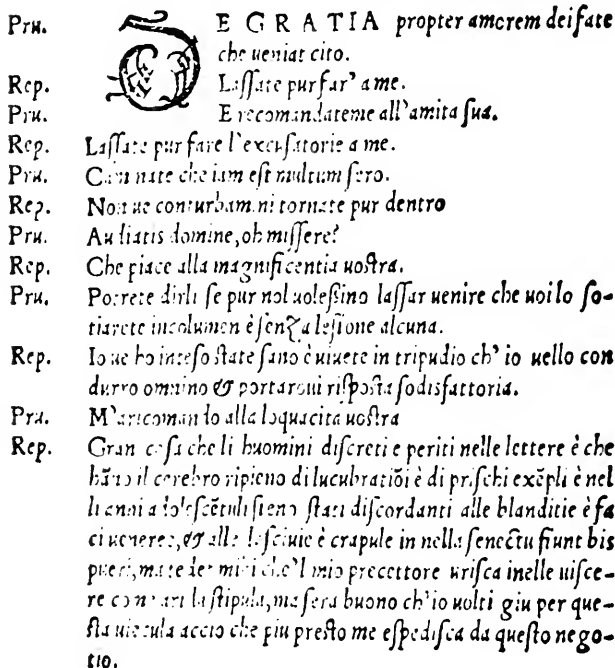 Pru. DE GRATIA propter amorem dei fate
che ueniat cito.
Rep. Lassate pur far' a me.
Pru. E recomandateme all'amita sua.
Rep. Lassate pur fare l'excusatorie a me.
Pru. Caminate che iam est multum sero.
Rep. Non ue conturbam.ni tornate pur dentro
Pru. Audiatis domine, oh missere?
Rep. Che piace alla magnificentia uostra.
Pru. Potrete dirli se pur nol uolessino lassar uenire che uoi lo so-
tiarete incolumen è senza lesione alcuna.
Rep. Io ue ho inteso state sano è uiuete in tripudio ch' io uello con
durro omnino & portaroui risposta sodisfattoria.
Pru. M'aricomando alla loquacita uostra
Rep. Gran cosa che li huomini discreti e periti nelle lettere è che
hāno il cerebro ripieno di lucubratiōi è di prischi exēpli è nel
li anni adolescētuli sieno stati discordanti alle blanditie è fa
ci ueneree, & alle lasciuie è crapule in nella senectu fiunt bis
pueri, che'l mio precettore urisca inelle uisce-
re la stipula, ma sera buono ch'io uolti giu per que-
sta uiecula accio che piu presto me espedisca da questo nego-
tio.